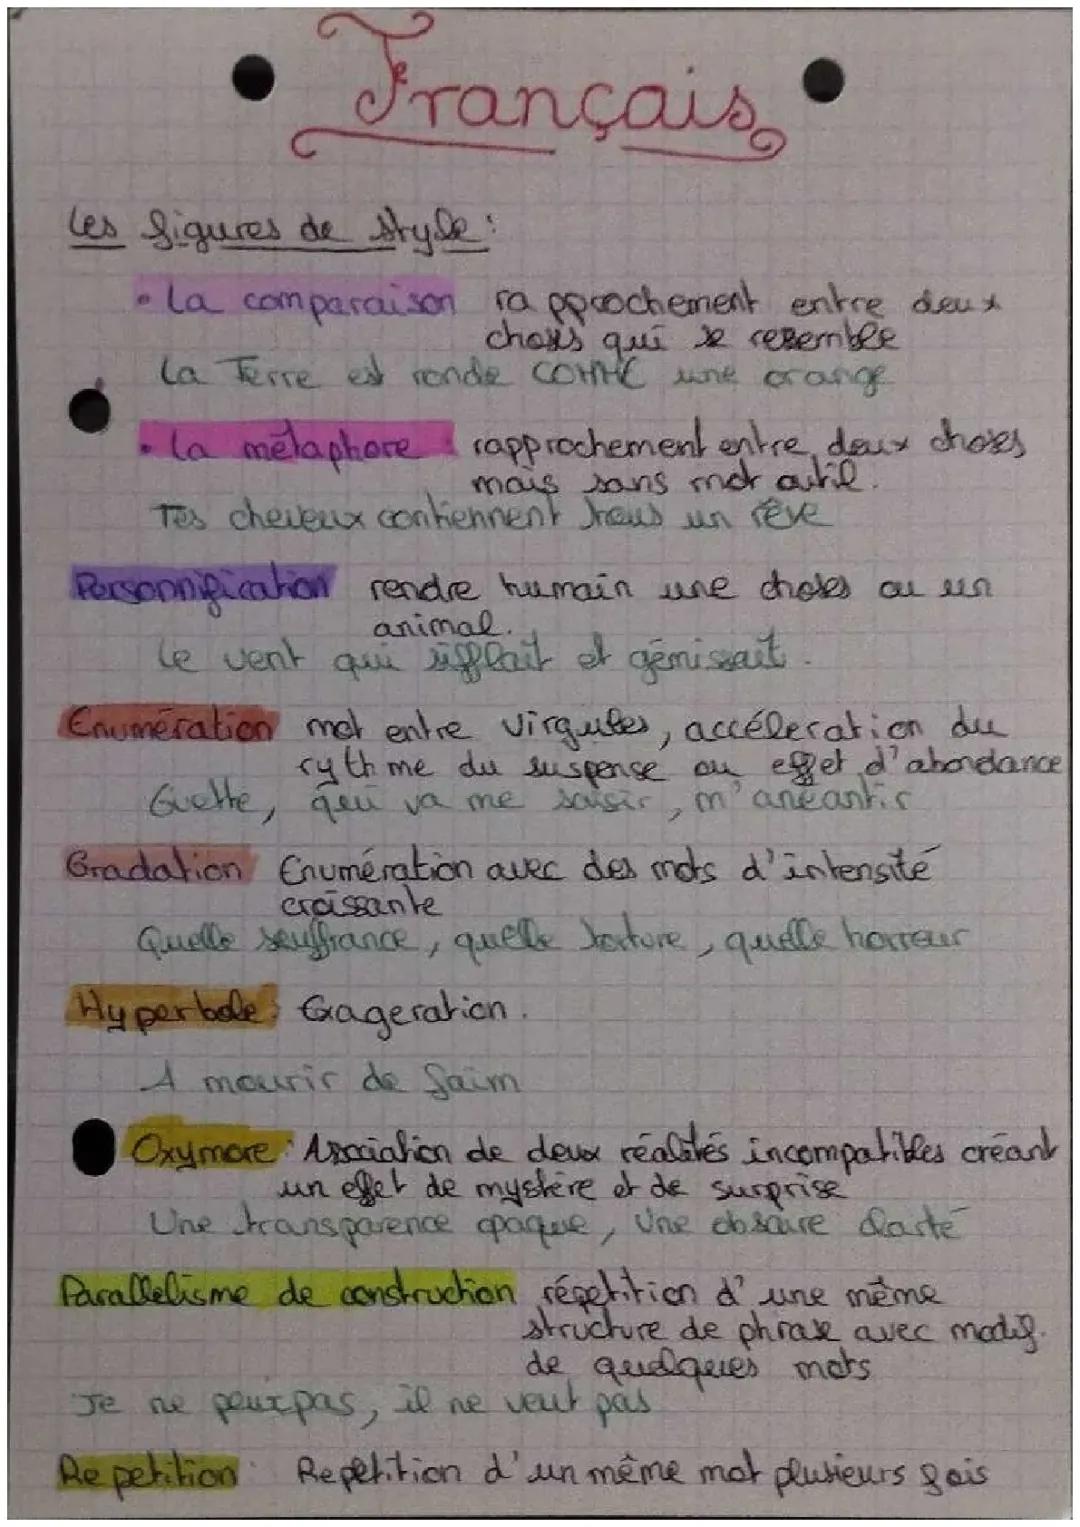 Français
Les figures de style :
• La comparaison rapprochement entre deux
choses qui se resemble
La Terre est ronde COMME une orange
• La métaphore : rapprochement entre deux choses
mais sans mot outil.
Tes cheveux contiennent tous un rêve
Personnification rendre humain une choses ou un
animal.
Le vent qui sifflait et gémissait.
Enumération mot entre virgules, accéleration du
rythme du suspense ou effet d'abondance
Guette, qui va me saisir, m'anéantir
Gradation Enumération avec des mots d'intensité
croissante
Quelle souffrance, quelle torture, quelle horreur
Hyperbole : Exageration.
A mourir de faim
Oxymore : Association de deux réalités incompatibles créant
un effet de mystère et de surprise
Une transparence opaque, Une obscure clarté
Parallelisme de construction répetition d'une même
structure de phrase avec modif.
de quelques mots
Je ne peux pas, il ne veut pas
Repetition : Repétition d'un même mot plusieurs fois